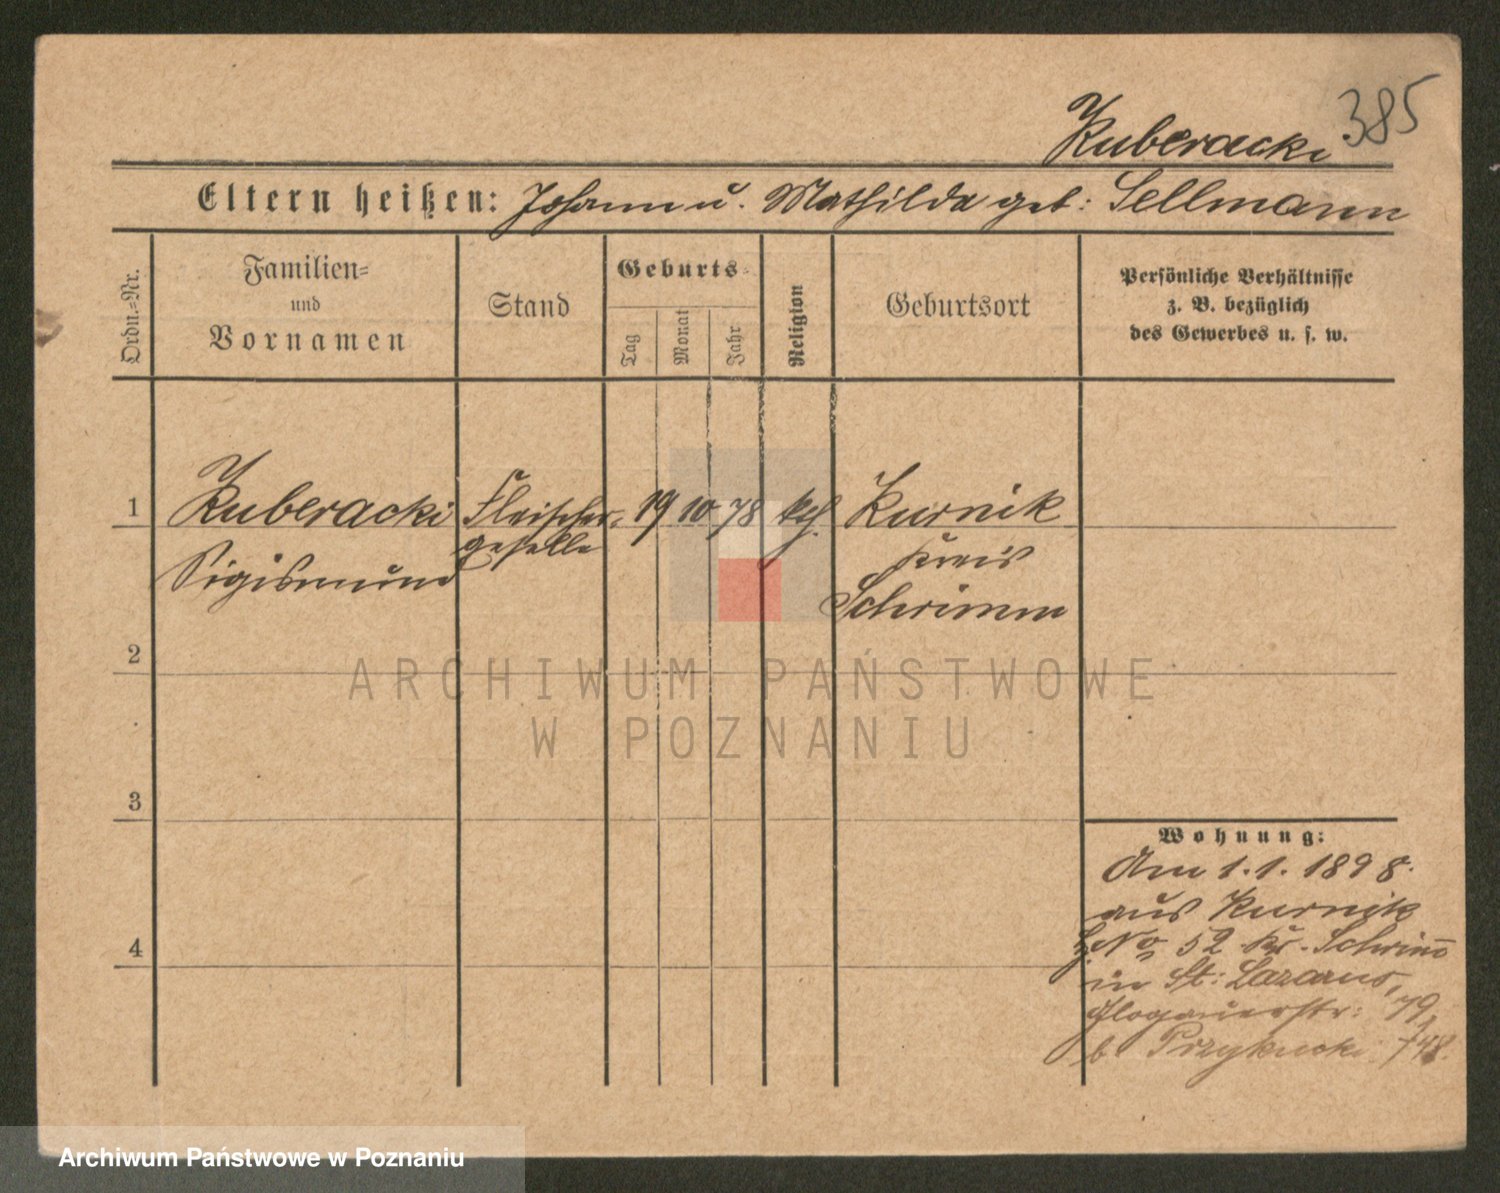 385
Kuberacki
Eltern heißen: Johann u. Mathilda geb: Sellmann
Ordn.=Nr.
Familien=
und
Vornamen
Stand
Geburts=
Tag
Monat
Jahr
Religion
Geburtsort
Persönliche Verhältnisse
z. B. bezüglich
des Gewerbes u. s. w.
1
Kuberacki
Sigismund
Fleischer=
geselle
19
10
78
kth.
Kurnik
Kreis
Schrimm
2
3
4
ARCHIWUM PAŃSTWOWE
W POZNANIU
Wohnung:
Am 1.1.1898.
aus Kurnik
No 52 Kr. Schrimm
in St: Lazarus,
Glogauerstr: 79,
b
Archiwum Państwowe w Poznaniu